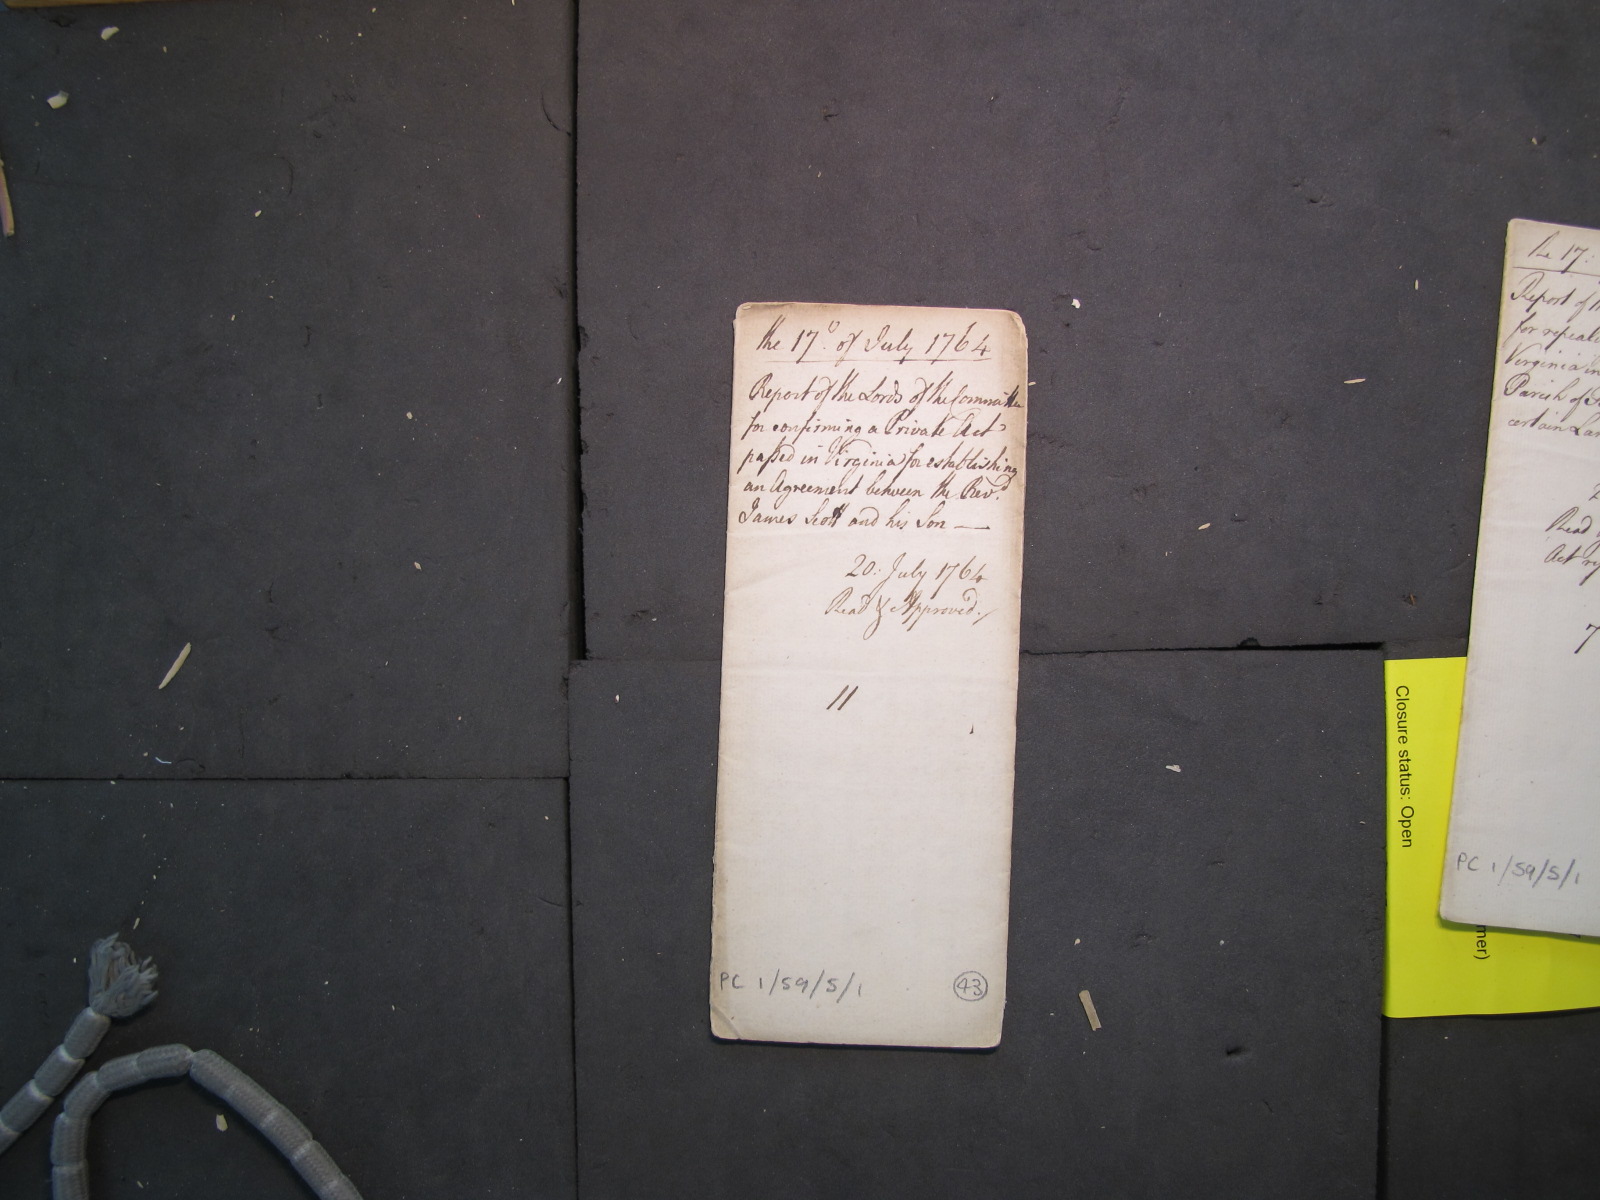 the 17.th of July 1764
Report of the Lords of the Committee
for confirming a Private Act
passed in Virginia for establishing
an Agreement between the Rev.d
James Scott and his Son —
20: July 1764
Read & Approved./
11
PC 1/59/5/1
43
the 17:
Report of
for repeal
Virginia in
Parish of
certain Lan
Read
Act re
7
PC 1/59/5/1
Closure status: Open
mer)